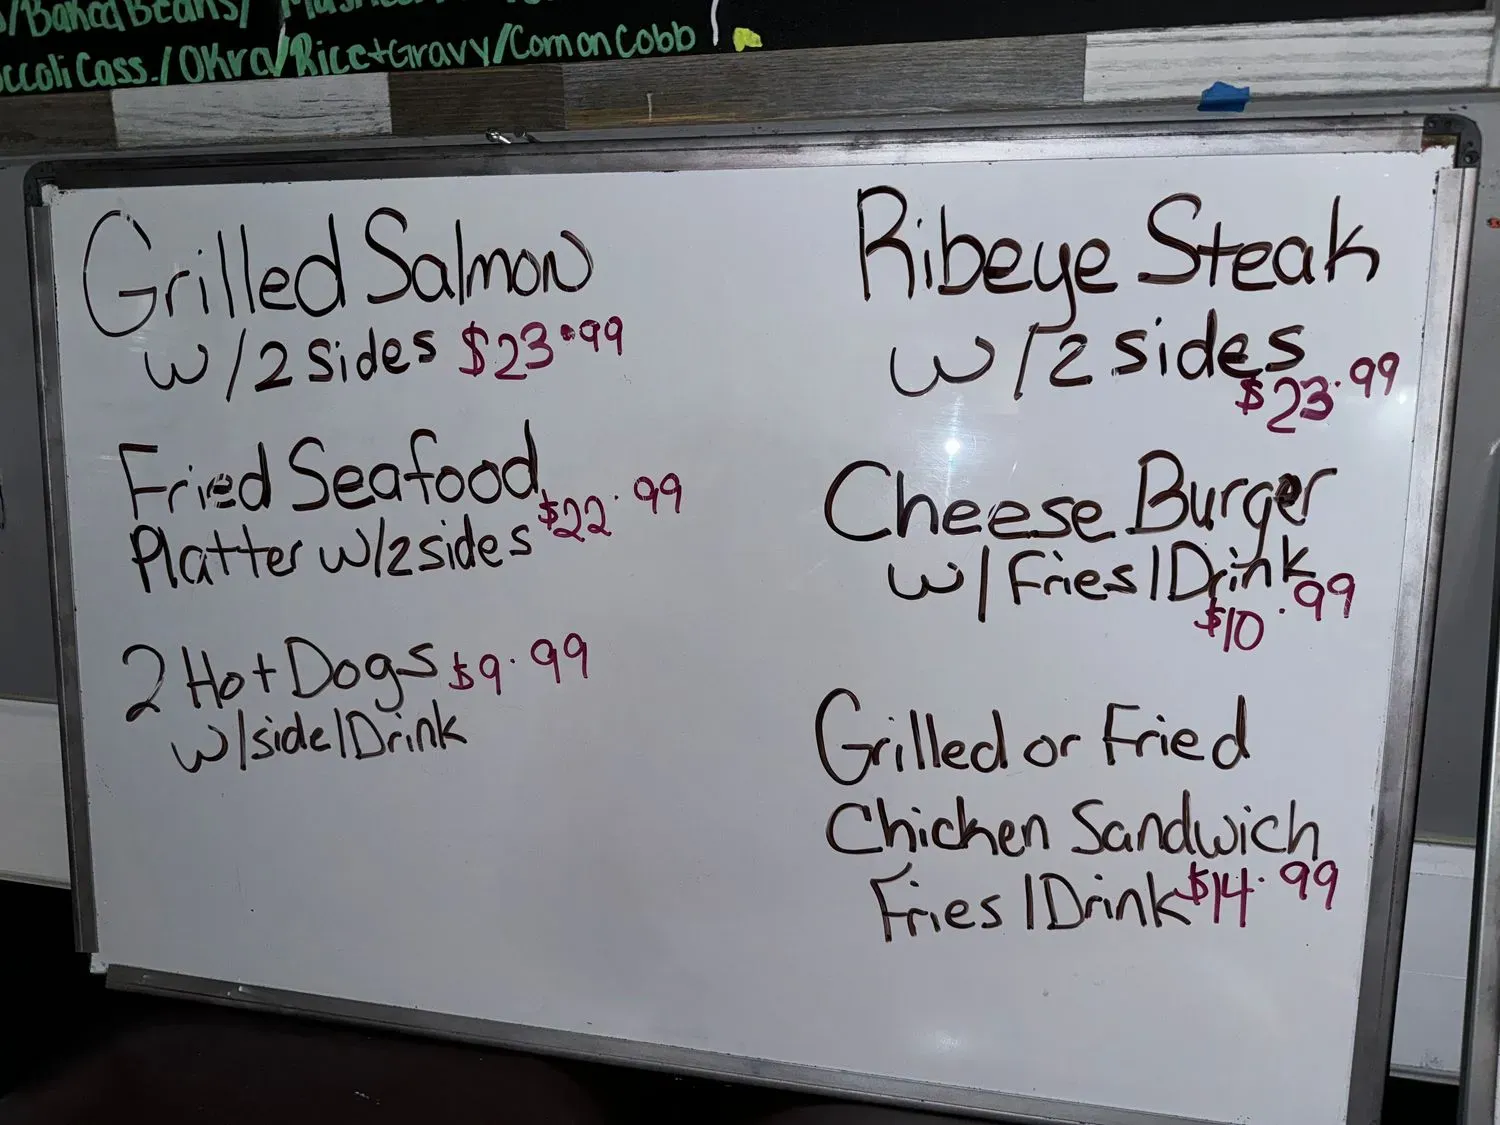 /Baked Beans/
Cass./Okra/Rice+Gravy/Corn on Cobb
Grilled Salmon
w/2 sides $23.99
Fried Seafood
Platter w/2sides $22.99
2 Hot Dogs $9.99
w/side/Drink
Ribeye Steak
w/2 sides
$23.99
Cheese Burger
w/Fries/Drink
$10.99
Grilled or Fried
Chicken Sandwich
Fries/Drink $14.99